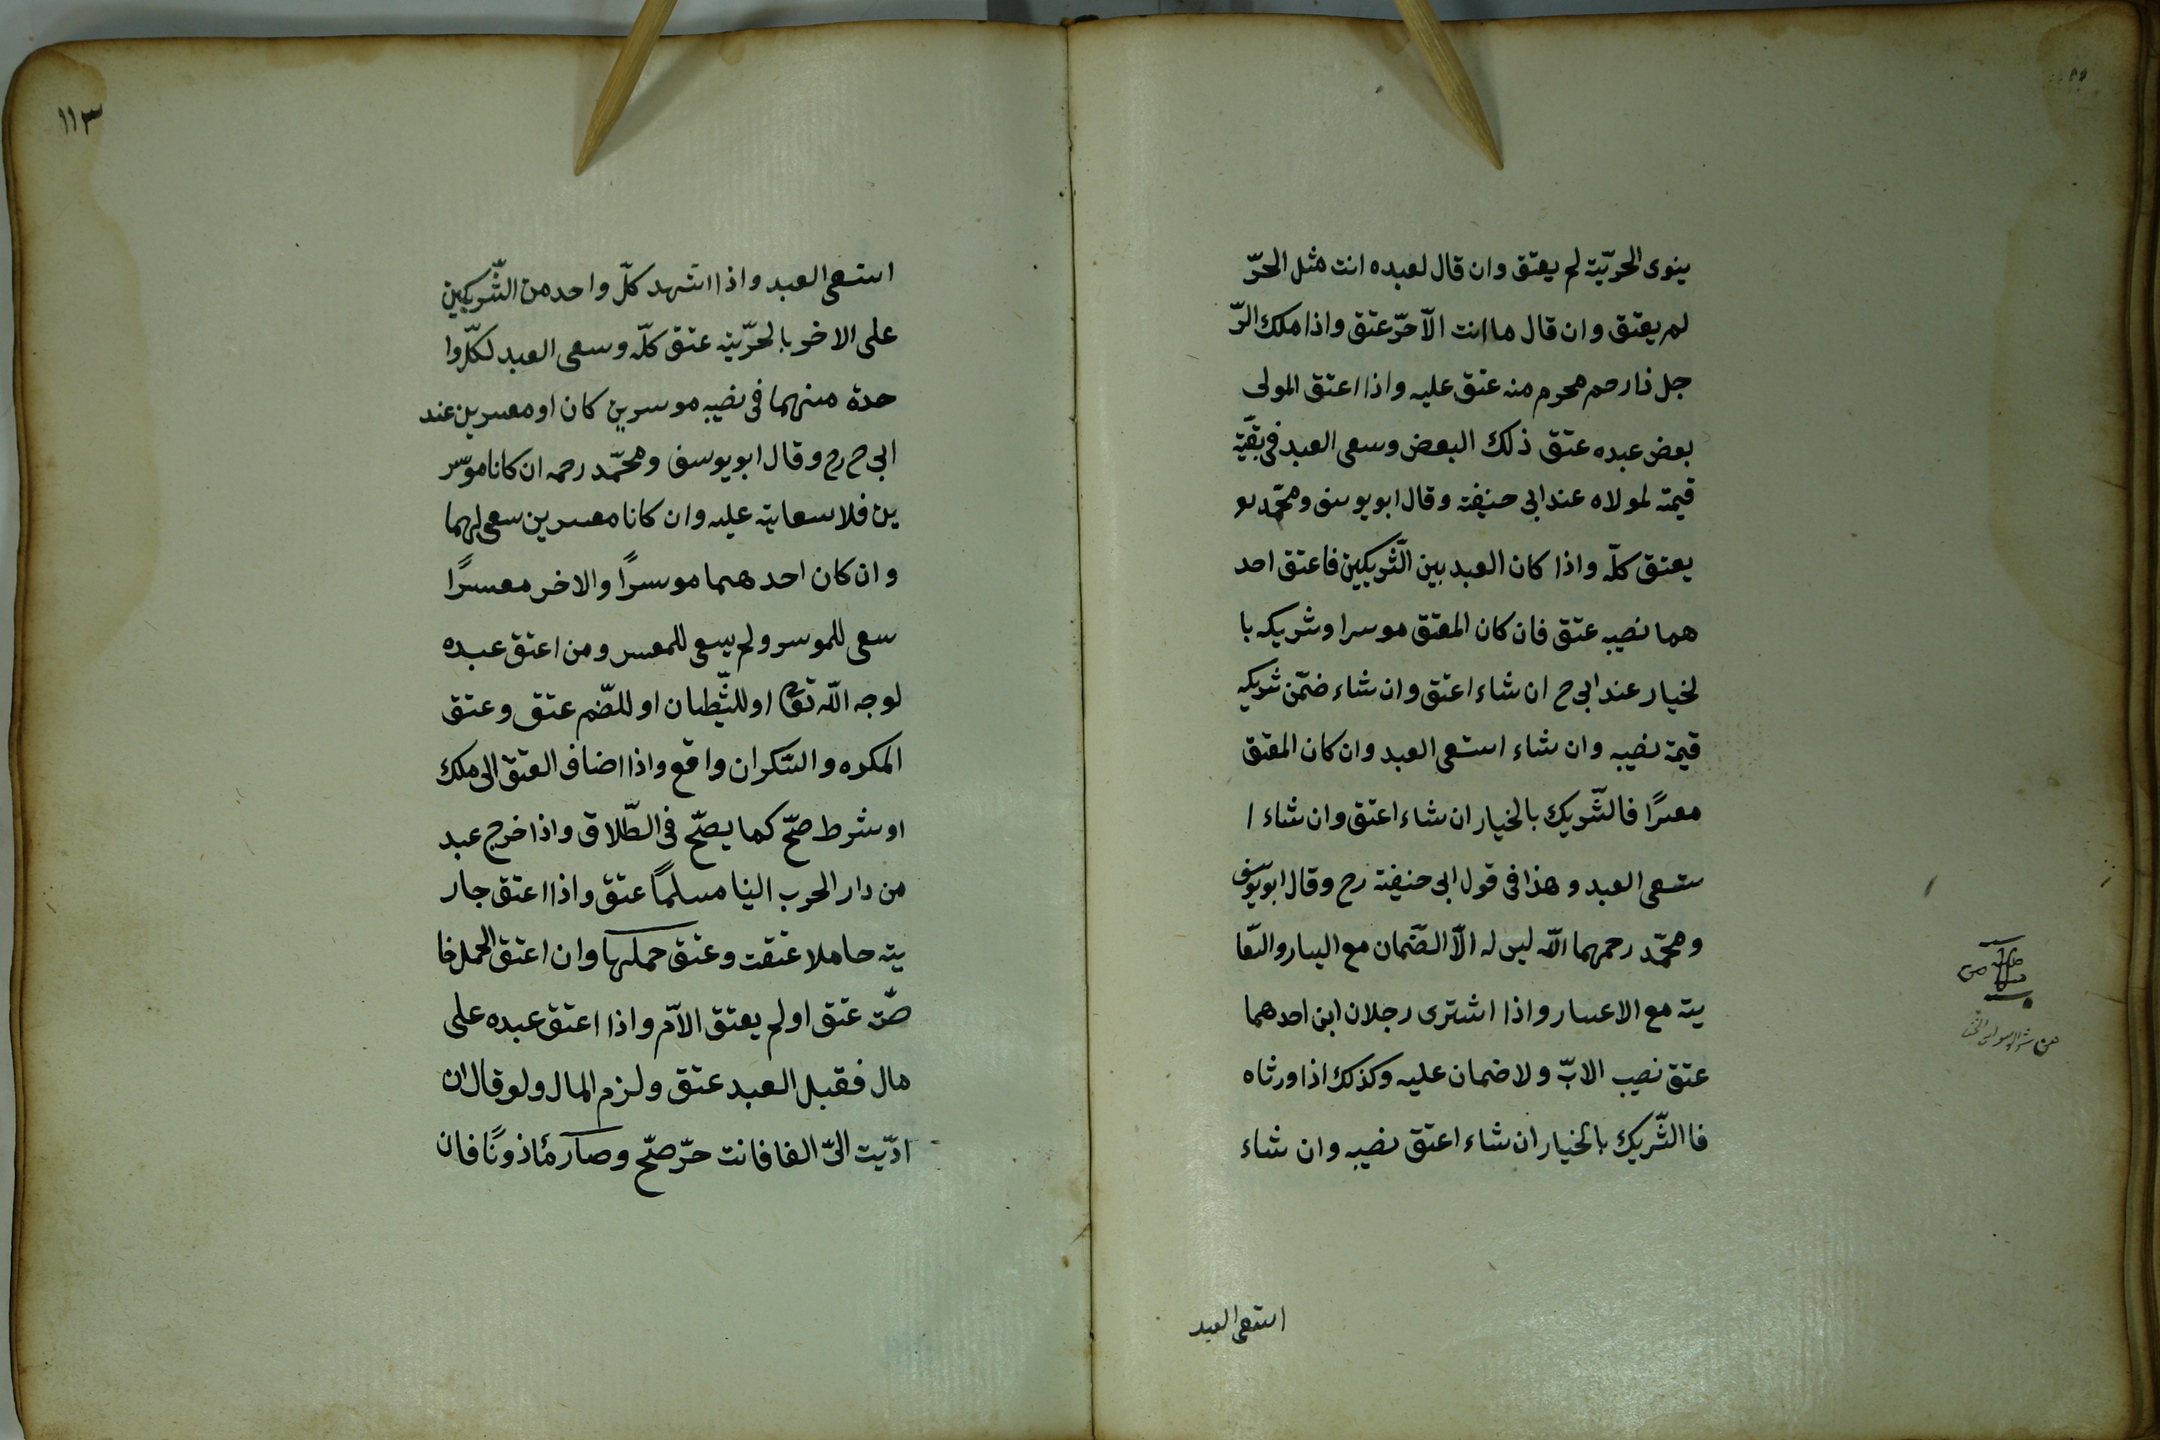 ينوى الحريّة لم يعتق وان قال لعبده انت مثل الحرّ
لم يعتق وان قال ما انت الّا حرّ عتق واذا ملك الرّ
جل ذا رحم محرم منه عتق عليه واذا اعتق المولى
بعض عبده عتق ذلك البعض وسعى العبد فى بقيّة
قيمته لمولاه عند ابى حنيفة وقال ابو يوسف ومحمّد
يعتق كلّه واذا كان العبد بين الشّريكين فاعتق احد
هما نصيبه عتق فان كان المعتق موسرا وشريكه با
لخيار عند ابى ح ان شاء اعتق وان شاء ضمّن شريكه
قيمة نصيبه وان شاء استسعى العبد وان كان المعتق
معسرًا فالشّريك بالخيار ان شاء اعتق وان شاء ا
ستسعى العبد وهذا فى قول ابى حنيفة رح وقال ابو يوسف
ومحمّد رحمهما اللّه ليس له الّا الضّمان مع اليسار والسّعا
ية مع الاعسار واذا اشترى رجلان ابن احدهما
عتق نصيب الابّ ولا ضمان عليه وكذلك اذا ورثاه
فا الشّريك بالخيار ان شاء اعتق نصيبه وان شاء
استسعى العبد
١١٣
استسعى العبد واذا اشهد كلّ واحد من الشّريكين
على الاخر بالحرّية عتق كلّه وسعى العبد لكلّ وا
حدة منهما فى نصيبه موسرين كان او معسرين عند
ابى ح رح وقال ابو يوسف ومحمّد رحمه ان كانا موسر
ين فلا سعاية عليه وان كانا معسرين سعى لهما
وان كان احدهما موسرًا والاخر معسرًا
سعى للموسر ولم يسعى للمعسر ومن اعتق عبده
لوجه اللّه تعا او للشّيطان او للصّنم عتق وعتق
المكره والسّكران واقع واذا اضاف العتق الى ملك
او شرط صحّ كما يصحّ فى الطّلاق واذا خرج عبد
من دار الحرب الينا مسلمًا عتق واذا اعتق جار
ية حاملا عتقت وعتق حملها وان اعتق الحمل خا
صّة عتق او لم يعتق الامّ واذا اعتق عبده على
مال فقبل العبد عتق ولزم المال ولو قال ان
ادّيت الىّ الفا فانت حرّ صحّ وصار مأذونًا فان